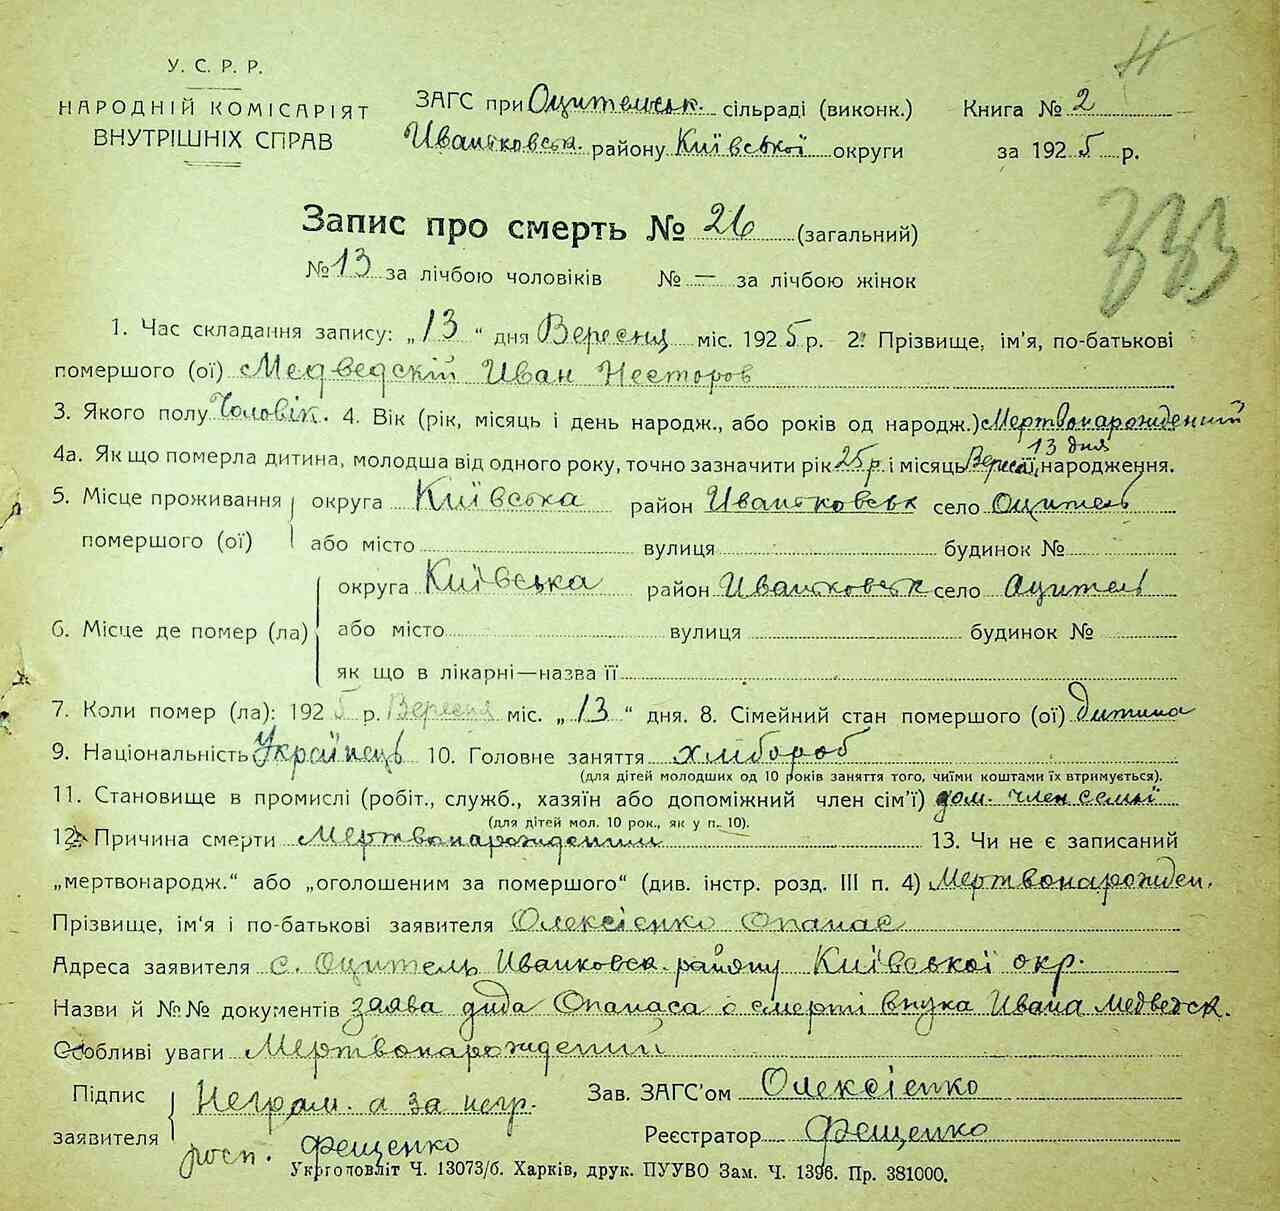 У. С. Р. Р.
НАРОДНІЙ КОМІСАРІЯТ
ВНУТРІШНІХ СПРАВ
ЗАГС при Оцительськ. сільраді (виконк.)
Книга № 2
Иваньковськ. району Київської округи
за 1925 р.
Запис про смерть № 26 (загальний)
333
№ 13 за лічбою чоловіків № — за лічбою жінок
1. Час складання запису: „13“ дня Вересня міс. 1925 р. 2. Прізвище, ім'я, по-батькові
помершого (ої) Медведскій Иван Несторов
3. Якого полу Чоловік. 4. Вік (рік, місяць і день народж., або років од народж.) Мертвонарожденний
4а. Як що померла дитина, молодша від одного року, точно зазначити рік 25 р. і місяць Вересня 13 дня народження.
5. Місце проживання помершого (ої) округа Київська район Иваньковськ село Оцитель
або місто вулиця будинок №
6. Місце де помер (ла) округа Київська район Иваньковськ село Оцитель
або місто вулиця будинок №
як що в лікарні—назва її
7. Коли помер (ла): 1925 р. Вересня міс. „13“ дня. 8. Сімейний стан помершого (ої) дитина
9. Національність Українець 10. Головне заняття хлібороб
(для дітей молодших од 10 років заняття того, чиїми коштами їх втримується).
11. Становище в промислі (робіт., служб., хазяїн або допоміжний член сім'ї) дом. член семьї
(для дітей мол. 10 рок., як у п. 10).
12. Причина смерти Мертвонарожденний 13. Чи не є записаний
„мертвонародж.“ або „оголошеним за помершого“ (див. інстр. розд. III п. 4) Мертвонарожден.
Прізвище, ім'я і по-батькові заявителя Олексієнко Опанас
Адреса заявителя с. Оцитель Иванковск. району Київської окр.
Назви й №№ документів заява дида Опанаса о смерті внука Ивана Медведск.
Особливі уваги Мертвонарожденій
Підпис заявителя Неграм. а за негр.
росп. Фещенко
Зав. ЗАГС'ом Олексієнко
Реєстратор Фещенко
Укрголовліт Ч. 13073/б. Харків, друк. ПУУВО Зам. Ч. 1396. Пр. 381000.